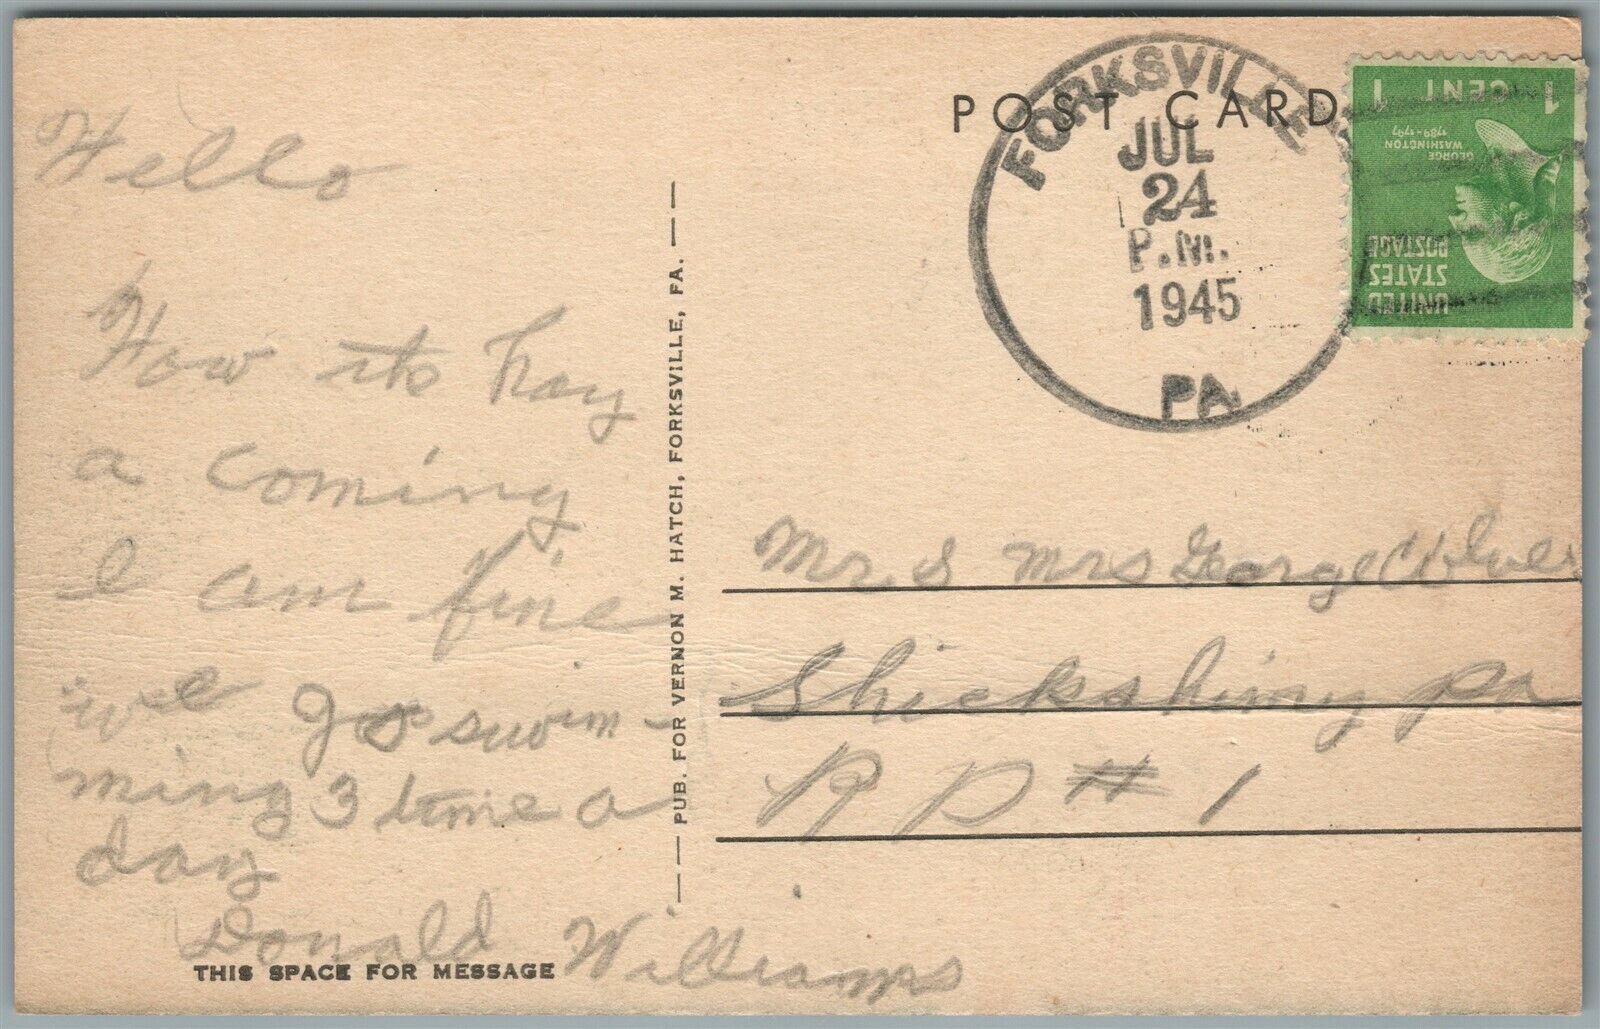 POST CARD
FORKSVILLE
JUL
24
P.M.
1945
PA.
1 CENT 1
GEORGE
WASHINGTON
1789-1797
UNITED
STATES
POSTAGE
Hello
How its hay
a coming
I am fine
we go swim-
ming 3 time a
day
Donald Williams
THIS SPACE FOR MESSAGE
PUB. FOR VERNON M. HATCH, FORKSVILLE, PA.
Mr. & Mrs George
Shickshinny Pa
R D # 1